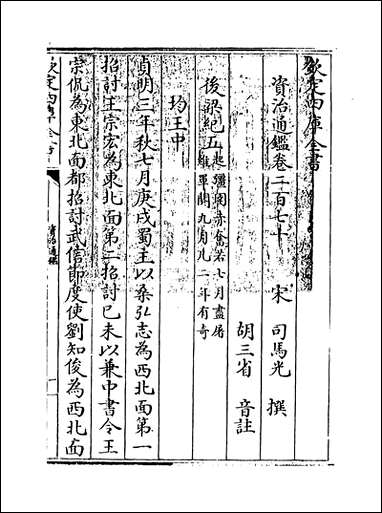 欽定四庫全書
資治通鑑卷二百七十 宋 司馬光 撰
胡三省 音註
後梁紀五 起彊圉赤奮若七月盡屠
維單閼九月凡二年有奇
均王中
貞明三年秋七月庚戌蜀主以桑弘志為西北面第一
招討王宗宏為東北面第二招討己未以兼中書令王
宗侃為東北面都招討武信節度使劉知俊為西北面